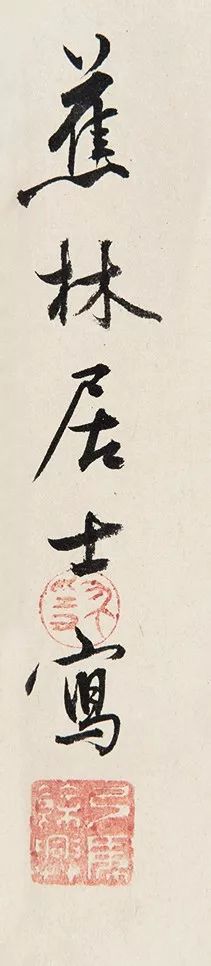 蕉林居士寫